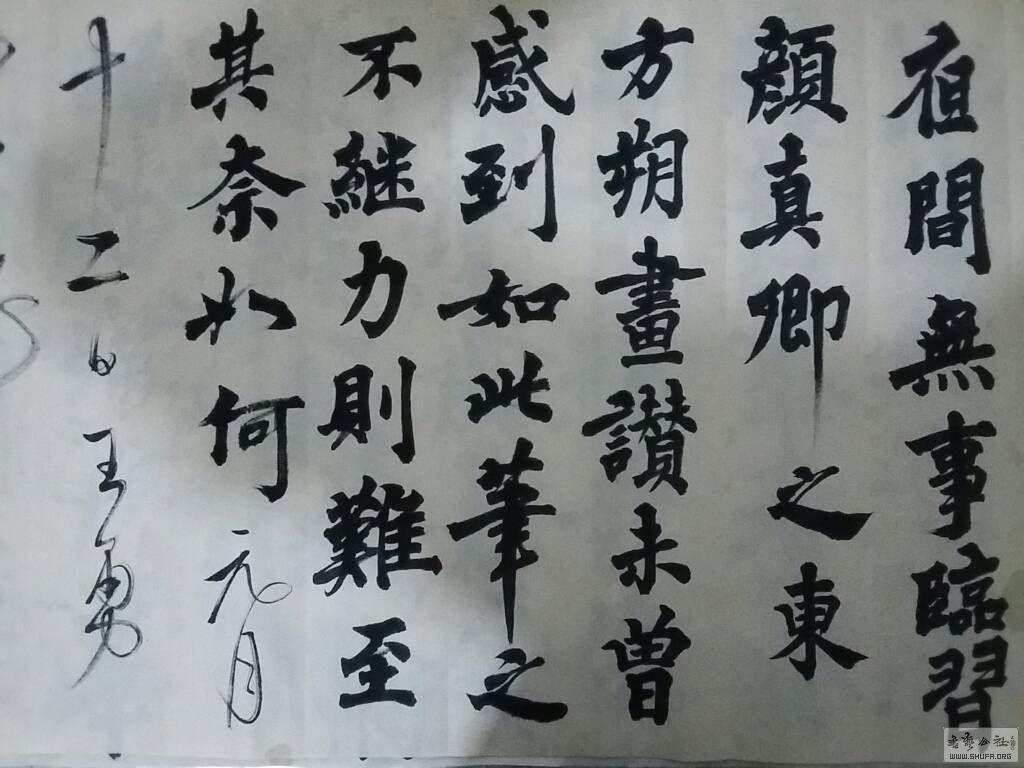 夜間無事臨習
顏真卿之東
方朔畫讚未曾
感到如此筆之
不繼力則難至
其奈如何元月
十二日王勇
WWW.SHUFA.ORG